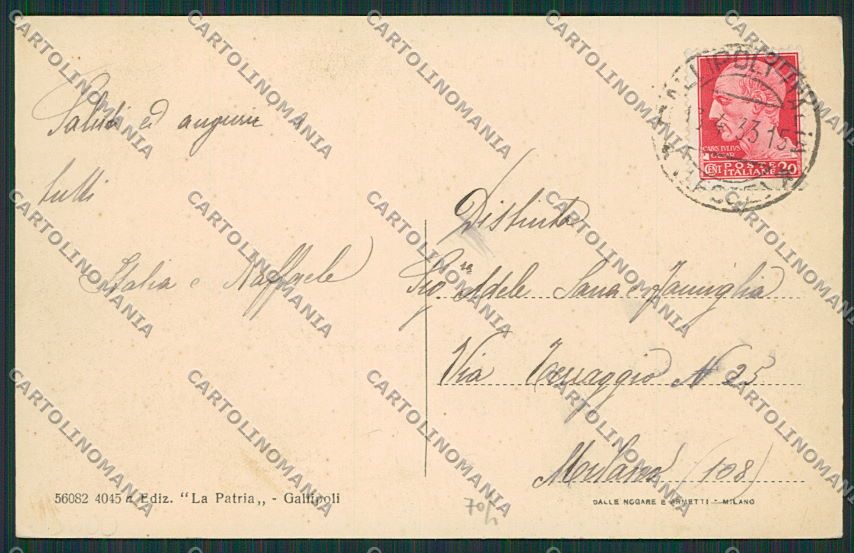 Saluti ed auguri
tutti
Italia e Raffaele
56082 4045 a Ediz. "La Patria„ - Gallipoli
GALLIPOLI
13.4.33.15
LECCE
CAIVS IVLIVS
CAESAR
CENT POSTE 20
ITALIANE
Distinta
Sig.ra Adele Sana e Famiglia
Via Terraggio N 25
Milano (108)
DALLE NOGARE E ARMETTI - MILANO
CARTOLINOMANIA